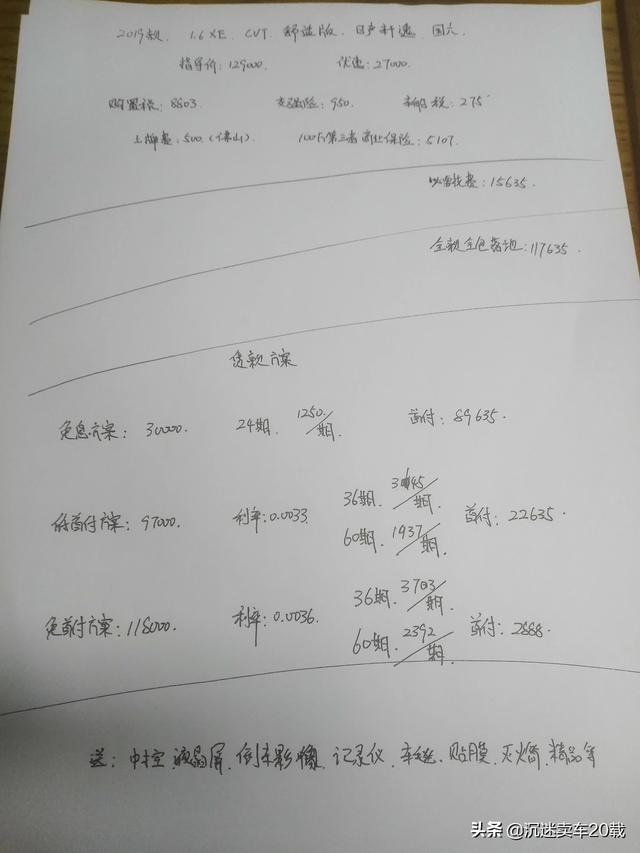 2019款. 1.6XE. CVT. 舒适版. 日产轩逸. 国六.
指导价: 129000. 优惠: 27000.
购置税: 8803. 交强险: 950. 车船税: 275
上牌费: 500. (佛山) 100万第三者商业保险: 5107.
必要花费: 15635.
全款全包落地: 117635.
贷款方案
免息方案: 30000. 24期. 1250./期. 首付: 89635.
低首付方案: 97000. 利率: 0.0033. 36期. 3045/期. 首付: 22635.
60期. 1937/期.
免首付方案: 118000. 利率: 0.0036. 36期. 3703/期. 首付: 2888.
60期. 2392/期.
送: 中控.液晶屏.倒车影像.记录仪.车毯.贴膜.灭火器.精品等
头条 @沉迷卖车20载